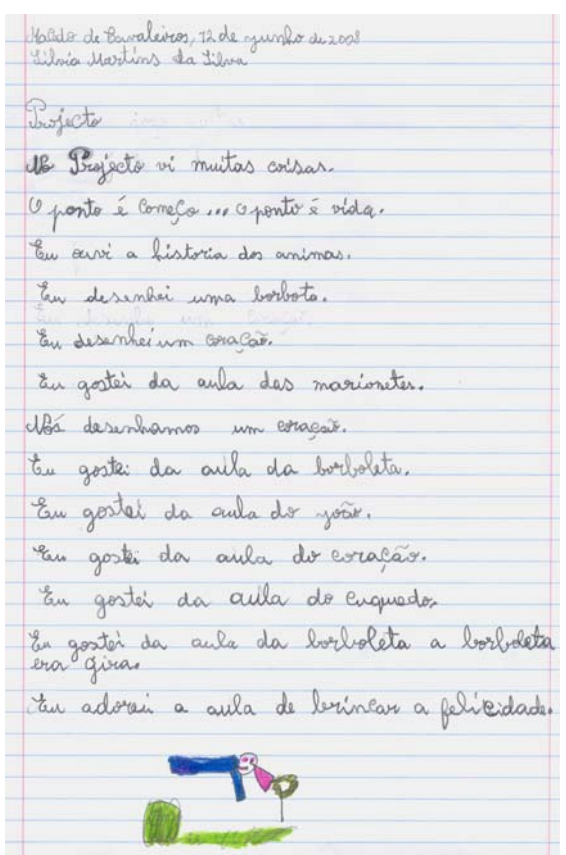 Macedo de Cavaleiros, 12 de junho de 2008
Silvia Martins da Silva
Projecto
No Projecto vi muitas coisas.
O ponto é começo ... o ponto é vida.
Eu ouvi a historia dos animas.
Eu desenhei uma borbota.
Eu desenhei um coração.
Eu gostei da aula das marionetes.
Nós desenhamos um coração.
Eu gostei da aula da borboleta.
Eu gostei da aula do joão.
Eu gostei da aula do coração.
Eu gostei da aula do
Eu gostei da aula da borboleta a borboleta
era gira.
Eu adorei a aula de brincar a felicidade.